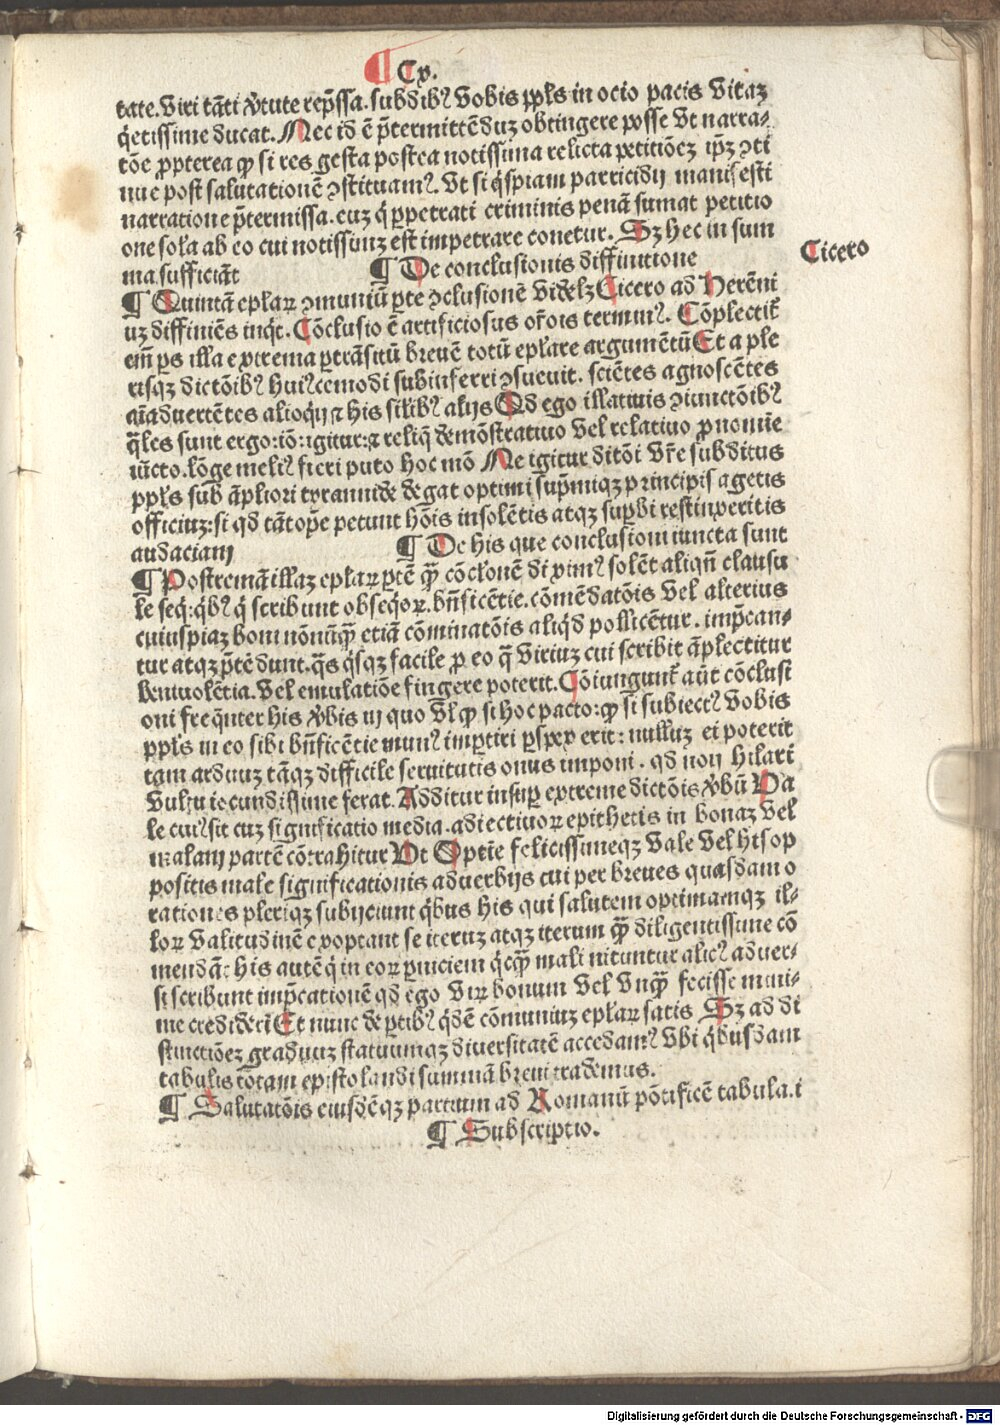 ¶ Cx.
tate. Viri tãti v̾tute rep̃ssa. subdibꝰ vobis ppl̃s in ocio pacis vitaz
q̃etissime ducat. Nec id ē p̃termittẽduz obtingere posse vt narra-
tõe ꝓpterea ꝙ si res gesta postea notissima relicta petitiõez ip̃z ꝯti
nue post salutationẽ ꝯstituamꝰ. Vt si q̃spiam parricidij manifesti
narratione p̃termissa. euz q̃ ꝑpetrati criminis penã sumat petitio
one sola ab eo cui notissimꝫ est impetrare conetur. Sꝫ hec in sum
ma sufficiãt ¶ De conclusionis diffinitione
Cicero
¶ Quintã ep̃laꝝ ꝯmuniũ ꝑte ꝯclusionẽ videlꝫ Cicero ad Herẽni
uz diffiniẽs inq̃t. Cõclusio ē artificiosus or̃ois terminꝰ. Cõplectit̃
em̃ ꝑs illa extrema ꝑtrãsitũ breuẽ totũ ep̃lare argumẽtũ Et a ple
risqꝫ dictõibꝰ huiꝰcemodi subinferri ꝯsueuit. sciẽtes agnoscẽtes
aĩaduertẽtes alioq̃ꝫ ⁊ his sil̃ibꝰ alijs Qd ego illatiuis ꝯiunctõibꝰ
q̃les sunt ergo: iõ: igitur: ⁊ reliq̃ demõstratiuo vel relatiuo ꝓnomie
iũcto. lõge meliꝰ fieri puto hoc mõ Ne igitur ditõi vr̃e subditus
ppl̃s sub ãpliori tyrannide degat optimi sup̃miqꝫ principis agetis
officiuꝫ: si qd tãtop̃e petunt hõis insolẽtis atqꝫ sup̃bi restinxeritis
audaciam ¶ De his que conclusioni iuncta sunt
¶ Postremã illaz ep̃laꝝ ꝑtẽ q̃ꝫ cõclonẽ diximꝰ solẽt aliqñ clausu
le seq̃: q̃bꝰ q̃ scribunt obseq̃oꝝ. bñficẽtie. cõmẽdatõis vel alterius
cuiuspiaz boni nõnũq̃ꝫ etiã cõminatõis aliq̃d pollicẽtur. imp̃can-
tur atqꝫ p̃tẽdunt. q̃s q̃sqꝫ facile ꝓ eo q̃ viriuz cui scribit ãplectitur
beniuolẽtia. vel emulatiõe fingere poterit. Cõiungunt̃ aũt cõclusi
oni freq̃nter his v̾bis in quo vl̃ ꝙ si hoc pacto: ꝙ si subiectꝰ vobis
ppl̃s in eo sibi bñficẽtie munꝰ imꝑtiri ꝑspex erit: nulluz ei poterit
tam arduuz tãqꝫ difficile seruitutis onus imponi. qd non hilari
vultu iocundissime ferat. Additur insup̃ extreme dictõis v̾bũ Va
le cuiꝰ sit cuz significatio media. adiectiuoꝝ epithetis in bonaz vel
malam partẽ cõtrahitur Vt Optie felicissimeqꝫ vale vel his op
positis male significationis aduerbijs cui per breues quasdam o
rationes pleriqꝫ subijciunt q̃bus his qui salutem optimamqꝫ il-
loꝝ valitudinẽ exoptant se iteruz atqꝫ iterum q̃ꝫ diligentissime cõ
mendãt: his autẽ q̃ in eoꝝ ꝑniciem q̃cq̃ꝫ mali nituntur alicꝰ aduer-
si scribunt imp̃cationẽ qd ego viꝝ bonum vel vnq̃ꝫ fecisse mini-
me crediderĩ Et nunc de ꝑtibꝰ q̃dẽ cõmuniuz ep̃laꝝ satis Sꝫ ad di
stinctiõez graduuz statuumqꝫ diuersitatẽ accedamꝰ vbi q̃busdam
tabulis tõtam epistolandi summã breui trademus.
¶ Salutatõis eiusdẽqꝫ partium ad Romanũ põtificẽ tabula. i
¶ Subscriptio.
Digitalisierung gefördert durch die Deutsche Forschungsgemeinschaft - DFG